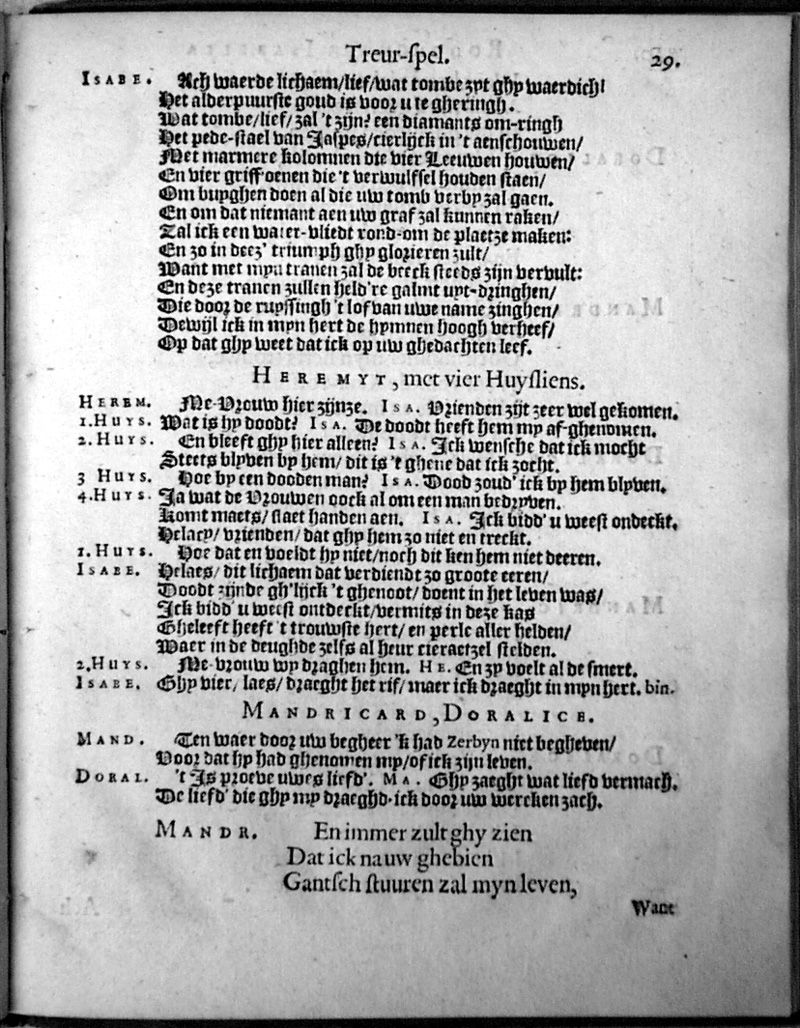 Treur-spel. 29.
ISABE. Ach waerde lichaem/lief/wat tombe zyt ghy waerdich!
Het alderpuurste goud is voor u te gheringh.
Wat tombe/lief/zal 't zijn? een diamants om-ringh
Het pede-stael van Jaspes/cierlijck in 't aenschouwen/
Met marmere kolomnen die vier Leeuwen houwen/
En vier griff-oenen die 't verwulfsel houden staen/
Om buyghen doen al die uw tomb verby zal gaen.
En om dat niemant aen uw graf zal kunnen raken/
Zal ick een water-vliedt rond-om de plaetze maken:
En zo in deez' triumph ghy glorieren zult/
Want met myn tranen zal de beeck steeds zijn vervult:
En deze tranen zullen held're galmt uyt-dringhen/
Die door de ruyssingh 't lof van uwe name zinghen/
Dewijl ick in myn hert de hymnen hoogh verheef/
Op dat ghy weet dat ick op uw ghedachten leef.
HEREMYT, met vier Huysliens.
HEREM. Me-Vrouw hier zijnze. ISA. Vrienden zijt zeer wel gekomen.
1.HUYS. Wat is hy doodt? ISA. De doodt heeft hem my af-ghenomen.
2.HUYS. En bleeft ghy hier alleen? ISA. Ick wensche dat ick mocht
Steets blyven by hem/dit is 't ghene dat ick zocht.
3 HUYS. Hoe by een dooden man? ISA. Dood zoud' ick by hem blyven.
4.HUYS. Ja wat de Vrouwen oock al om een man bedryven.
Komt maets/slaet handen aen. ISA. Ick bidd' u weest ondeckt,
Helacy/vrienden/dat ghy hem zo niet en treckt.
1.HUYS. Hoe dat en voeldt hy niet/noch dit ken hem niet deeren.
ISABE. Helaes/dit lichaem dat verdiendt zo groote eeren/
Doodt zijnde gh'lijck 't ghenoot/doent in het leven was/
Ick bidd' u weest ontdeckt/vermits in deze kas
Gheleeft heeft 't trouwste hert/en perle aller helden/
Waer in de deughde zelfs al heur cieraetzel stelden.
2.HUYS. Me-vrouw wy draghen hem. HE. En zy voelt al de smert.
ISABE. Ghy vier/laes/draeght het rif/maer ick draeght in myn hert. bin.
MANDRICARD, DORALICE.
MAND. Ten waer door uw begheer 'k had Zerbyn niet begheven/
Voor dat hy had ghenomen my/of ick zijn leven.
DORAL. 't Is proeve uwes liefd'. MA. Ghy zaeght wat liefd vermach.
De liefd' die ghy my draeghd-ick door uw wercken zach.
MANDR. En immer zult ghy zien
Dat ick na uw ghebien
Gantsch stuuren zal myn leven,
Want